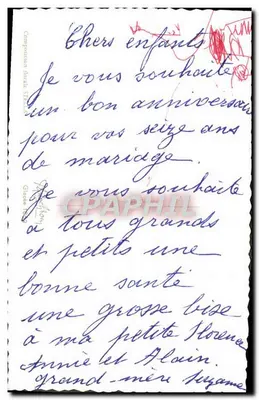 Chers enfants
Je vous souhaite
un bon anniversaire
pour vos seize ans
de mariage.
Je vous souhaite
à tous grands
et petits une
bonne santé
une grosse bise
à ma petite Florence
Annie et Alain.
grand-mère Suzanne
CPAPHIL